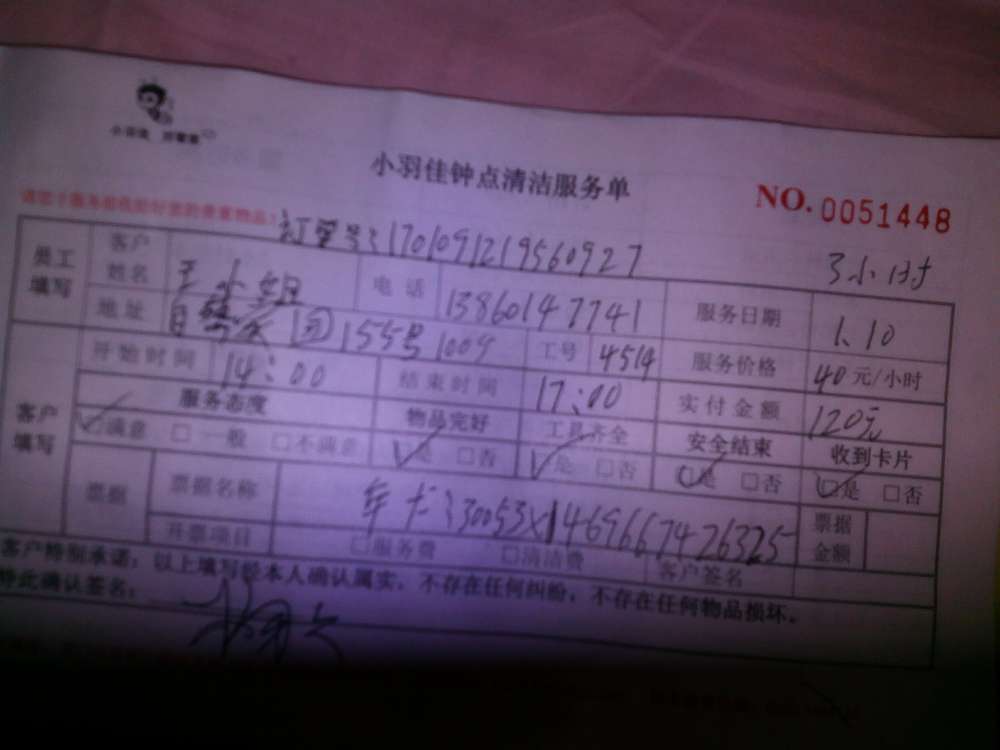 小羽佳钟点清洁服务单
NO. 0051448
订单号:1701091219560927 3小时
员工填写 客户姓名 王小姐 电话 13860147741 服务日期 1.10
地址 155号1009 工号 4514 服务价格 40元/小时
开始时间 14:00 结束时间 17:00 实付金额 120元
客户填写 服务态度 物品完好 工具齐全 安全结束 收到卡片
☑满意 □一般 □不满意 ☑是 □否 ☑是 □否 ☑是 □否 ☑是 □否
票据 票据名称 年卡:30053X1469667426325 票据金额
开票项目 □服务费 □清洁费 客户签名
客户特别承诺:以上填写经本人确认属实,不存在任何纠纷,不存在任何物品损坏。
特此确认签名: